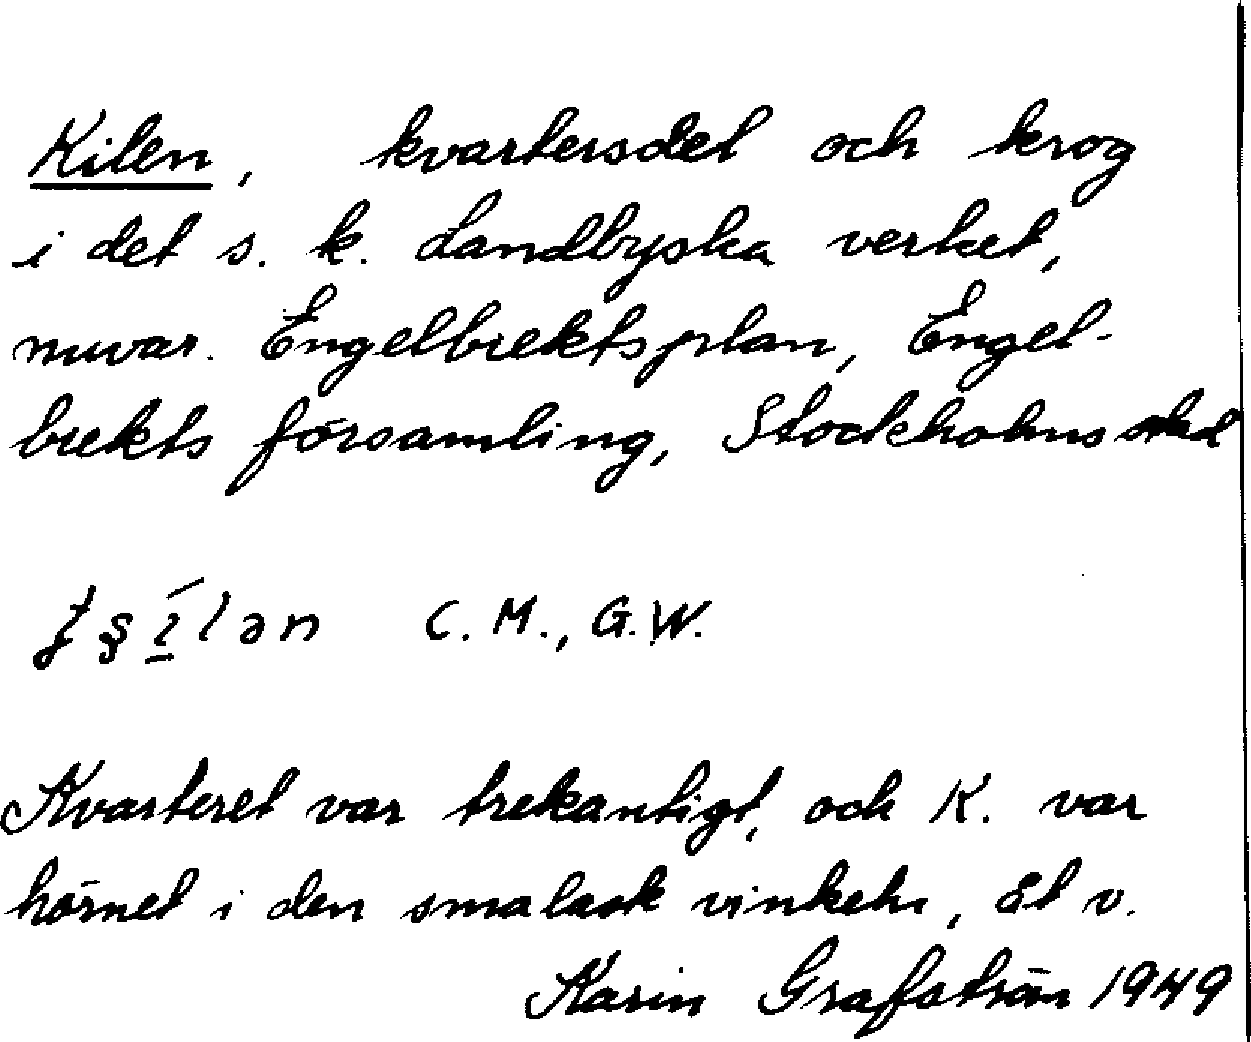 Kilen, kvartersdel och krog
i det s. k. Landbyska verket,
nuvar. Engelbrektsplan, Engel-
brekts församling, Stockholms stad
C. M., G.W.
Kvarteret var trekantigt, och K. var
hörnet i den smalaste vinkeln,
Karin Grafström 1949